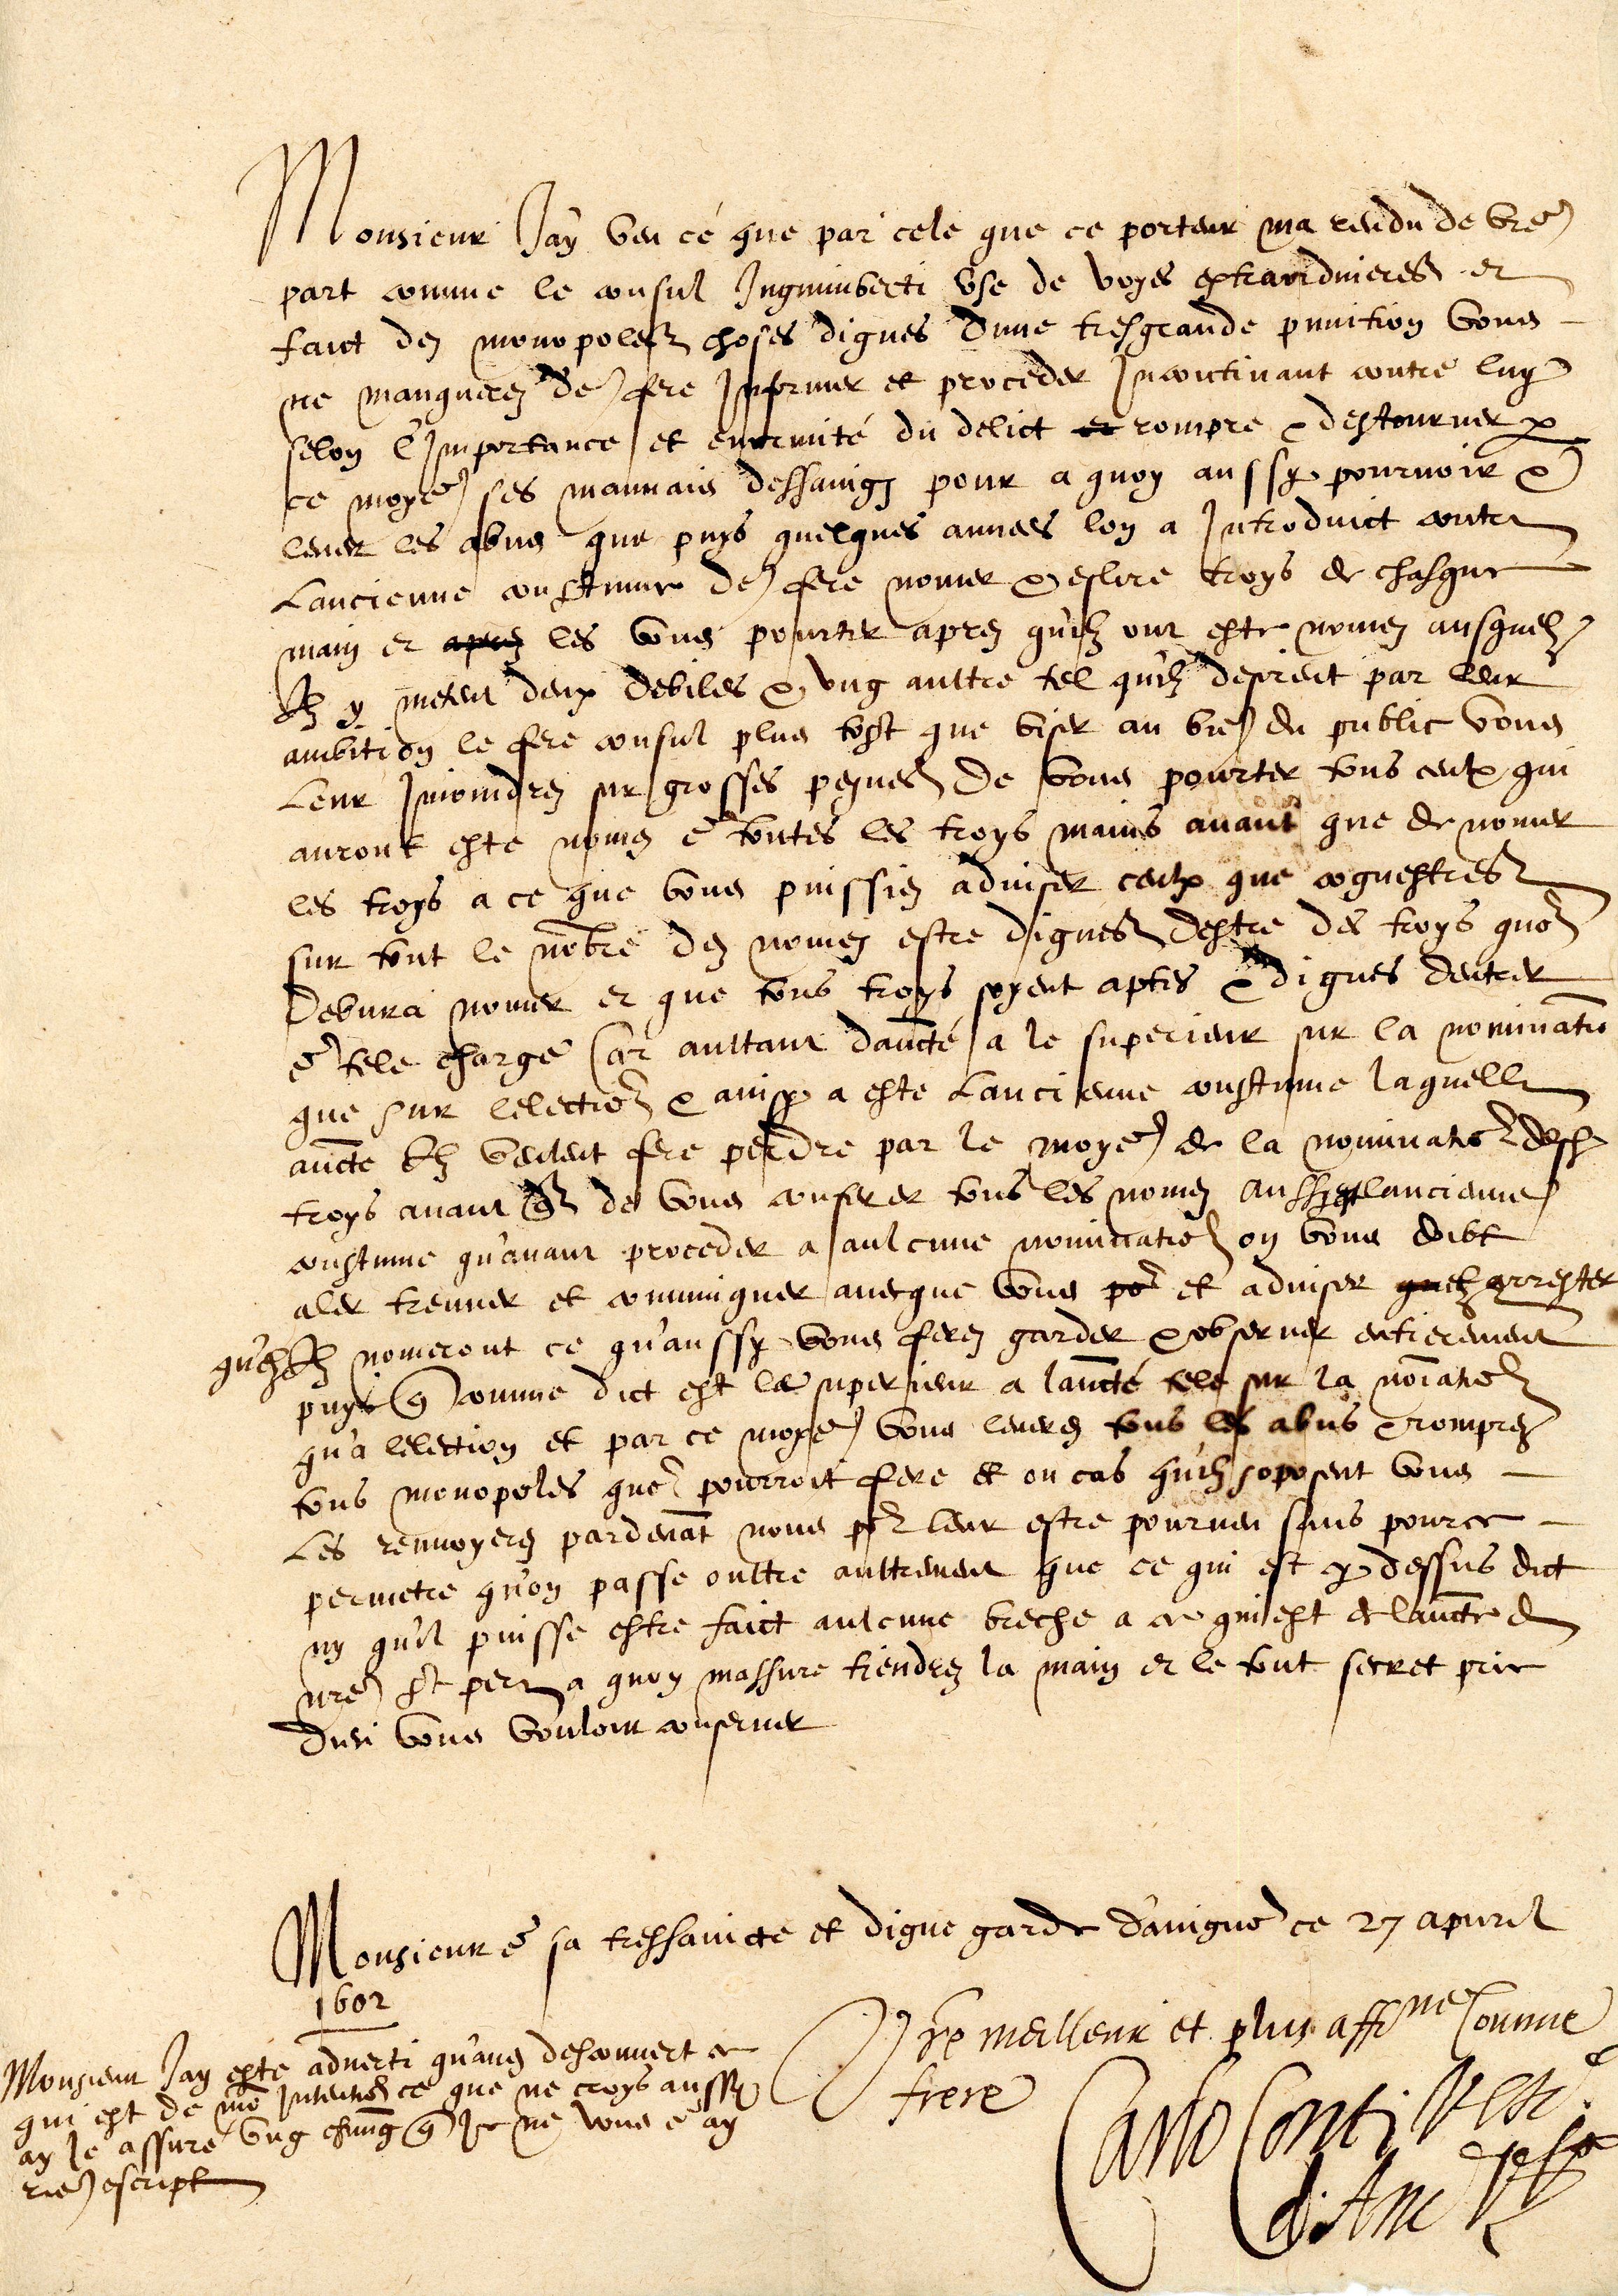 Monsieur Jay veu cé que par cele que ce porteur ma rendu de vre
part comme le consul Inguimberti use de voyes extraordinieres et
faict des monopoles choses dignes dune tresgrande punition vous
ne manquerez de fere Informer et proceder Incontinant contre luy
selon l'Importance et enormité du delict et rompre & destourner p
ce moyē ses mauvais dessaings pour a quoy aussy pourvoir &
lever les abus que puys quelques annees lon a Introduict contre
Lancienne coustume de fere nomer & eslire troys de chasque
main et apres les vous pourter apres qu'ilz ont este nomez ausquelz
Ilz y metent deux debiles & ung aultre tel qu'ilz desirent par leur
ambition le fere consul plus tost que viser au bie du public vous
Leur Inioindrez sur grosses peynes De vous pourter tous ceulx qui
auront este nomez ē toutes les troys mains avant que de nomer
les troys a ce que vous puissiez adviser ceulx que cognestres
sur tout le nōbre des nomez estre dignes destre des troys quō
Debvra nomer et que tous troys soyent aptes & dignes dentrer
ē tele charge Car aultant dauctē a le superieur sur la nominatiō
que sur lelectiō & aussy a este Lancienne coustume laquelle
aucte Ilz veulent fere perdre par le moyē de la nominatiō desd
troys avant q de vous conferer tous les nomez Aussy est lancienne
coustume qu'avant proceder a aulcune nominatiō on vous doibt
aler treuver et comuniquer avecque vous po et adviser quelz arrester
qu'elz Ilz nomeront ce qu'aussy vous ferez garder & observer entierement
puys q comme dict est le superieur a lauctē tele sur la noīatiō
qu'a lelection et par ce moyē vous leverez tous les abus & romprez
tous monopoles quō pourroit fere et ou cas qu'ilz soposent vous
Les renvoyerez pardevāt nous pr leur estre pourveu sans pource
permetre qu'on passe oultre aultrement que ce qui est cy dessus dict
ny qu'il puisse estre faict aulcune breche a ce qui est de laucte d
nre St pere a quoy massure tiendrez la main et le tout secret prie
Dieu vous vouloir conserver
Monsieur ē sa tressaincte et digne garde D'avignō ce 27 apvril
1602
Vre meilleur et plus affne Comme
frere
Carlo Conti
d'Anc
Monsieur Jay este adverti qu'aves descouvert ce
qui est de mō Intentiō ce que ne croys aussy
ay Je assure ung chung q Je ne vous ē ay
rie escript